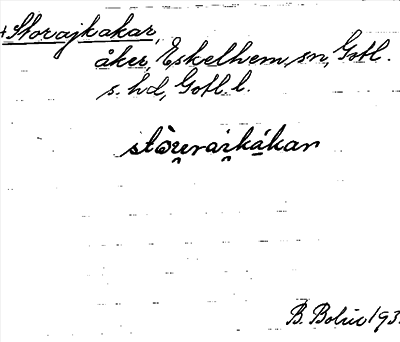 +Storajkakar,
åker, Eskelhem sn, Gotl.
s. hd, Gotl. l.
stòu̯rai̯kákan
B. Bolin 193